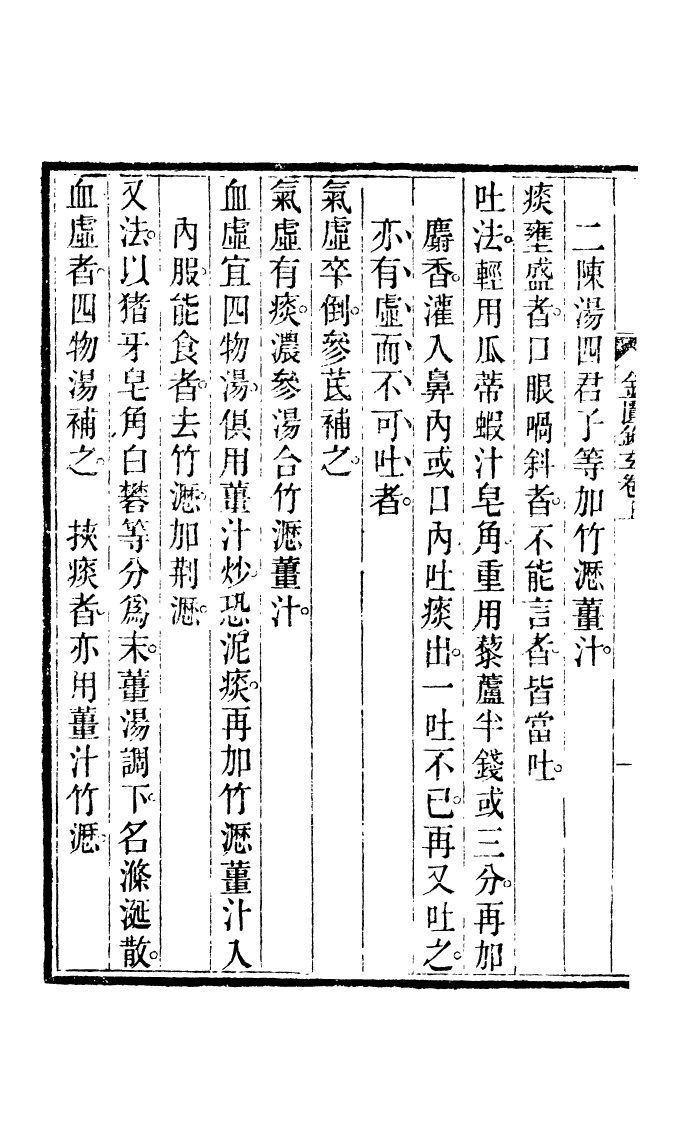 金匱鉤玄卷
一
二陳湯四君子等加竹瀝薑汁。
痰壅盛者。口眼喎斜者。不能言者。皆當吐。
吐法。輕用瓜蒂蝦汁皂角。重用藜蘆半錢或三分。再加
麝香。灌入鼻內或口內吐痰出。一吐不已。再又吐之。
亦有虛而不可吐者。
氣虛卒倒。參芪補之。
氣虛有痰。濃參湯合竹瀝薑汁。
血虛宜四物湯。俱用薑汁炒。恐泥痰。再加竹瀝薑汁入
內服。能食者。去竹瀝加荆瀝。
又法。以猪牙皂角白礬等分爲末。薑湯調下。名滌涎散。
血虛者。四物湯補之。 挾痰者。亦用薑汁竹瀝。